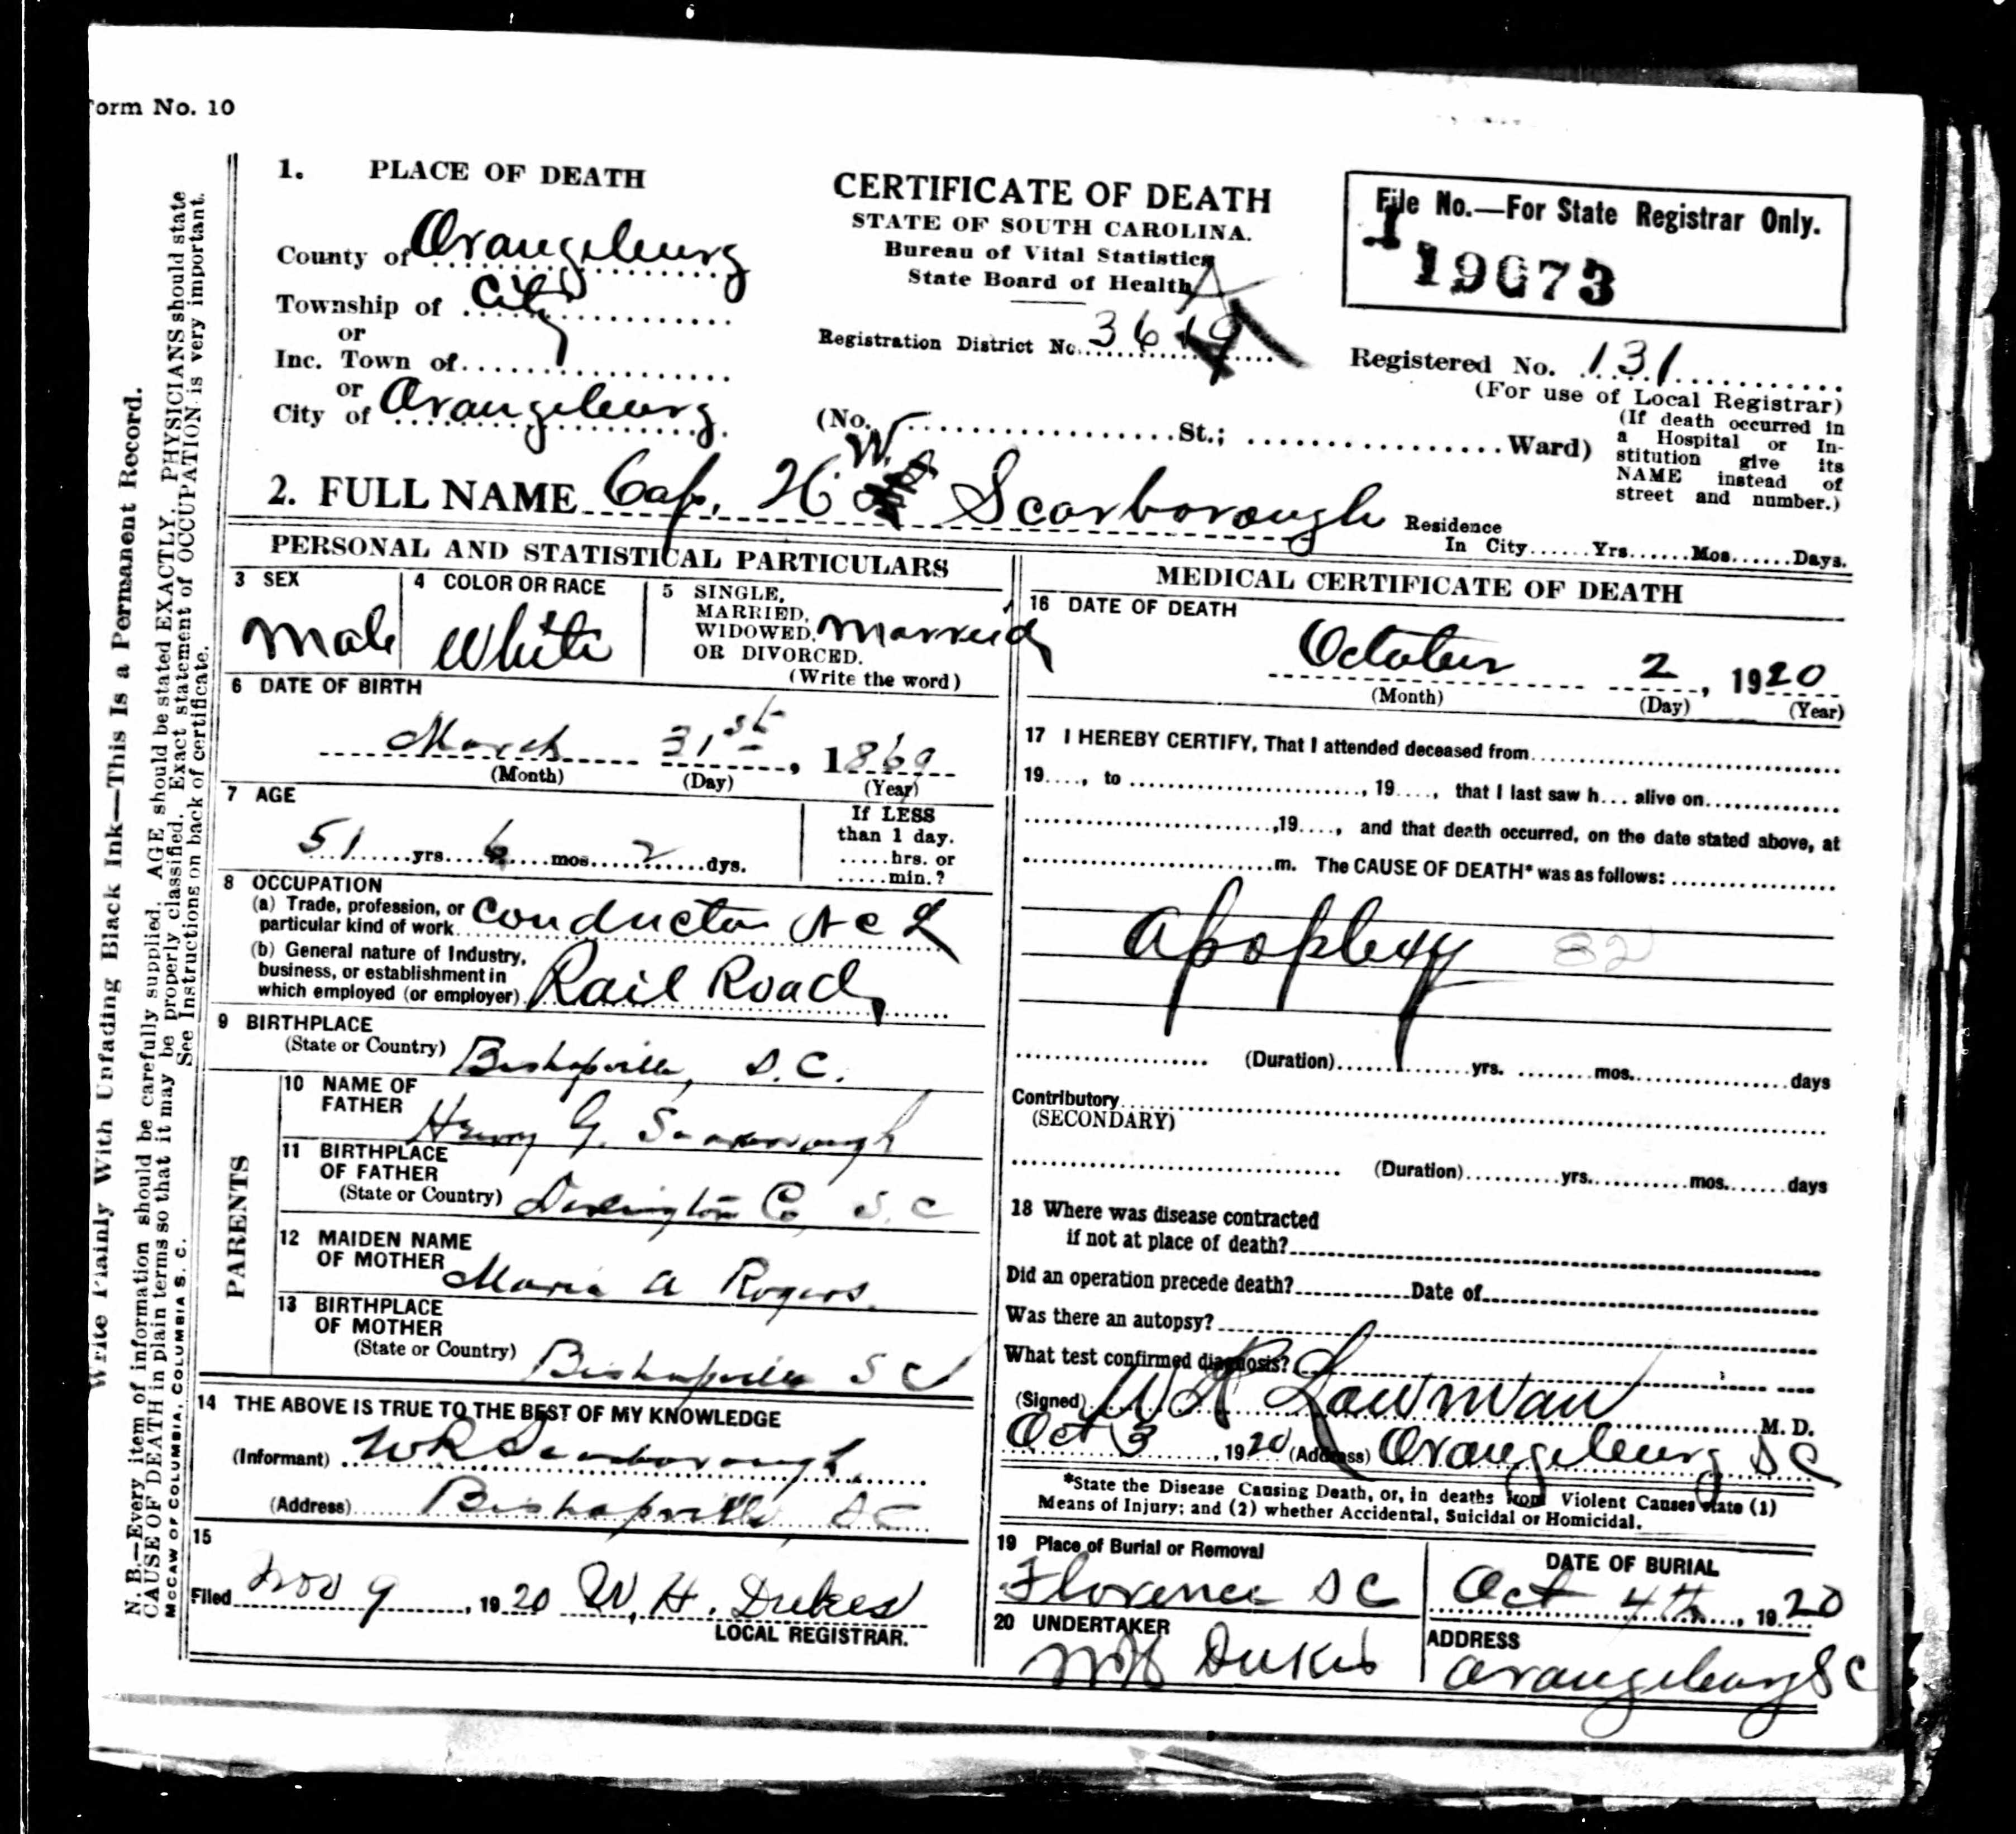 Form No. 10
1. PLACE OF DEATH
County of Orangeburg
Township of City
or
Inc. Town of
or
City of Orangeburg
CERTIFICATE OF DEATH
STATE OF SOUTH CAROLINA.
Bureau of Vital Statistics
State Board of Health
Registration District No. 3619 A
(No. St.; Ward)
File No.—For State Registrar Only.
19673
Registered No. 131
(For use of Local Registrar)
(If death occurred in
a Hospital or In-
stitution give its
NAME instead of
street and number.)
2. FULL NAME Cap. H W. Scarborough
Residence
In City......Yrs......Mos......Days.
PERSONAL AND STATISTICAL PARTICULARS
3 SEX
Male
4 COLOR OR RACE
White
5 SINGLE,
MARRIED,
WIDOWED,
OR DIVORCED.
Married
(Write the word)
6 DATE OF BIRTH
March 31st, 1869
(Month) (Day) (Year)
7 AGE
51 yrs. 6 mos. 2 dys.
If LESS
than 1 day.
.....hrs. or
.....min.?
8 OCCUPATION
(a) Trade, profession, or
particular kind of work Conductor A C L
(b) General nature of Industry,
business, or establishment in
which employed (or employer) Rail Road
9 BIRTHPLACE
(State or Country) Bishopville, S.C.
PARENTS
10 NAME OF
FATHER Henry G. Scarborough
11 BIRTHPLACE
OF FATHER
(State or Country) Darlington Co, S.C
12 MAIDEN NAME
OF MOTHER Maria A Rogers.
13 BIRTHPLACE
OF MOTHER
(State or Country) Bishopville S C
14 THE ABOVE IS TRUE TO THE BEST OF MY KNOWLEDGE
(Informant) W R Scarborough
(Address) Bishopville, S C
15
Filed Nov 9, 1920 W. H. Dukes
LOCAL REGISTRAR.
MEDICAL CERTIFICATE OF DEATH
16 DATE OF DEATH
October 2, 1920
(Month) (Day) (Year)
17 I HEREBY CERTIFY, That I attended deceased from
19...., to , 19...., that I last saw h... alive on
,19...., and that death occurred, on the date stated above, at
m. The CAUSE OF DEATH* was as follows:
Apoplexy 82
(Duration) yrs. mos. days
Contributory
(SECONDARY)
(Duration) yrs. mos. days
18 Where was disease contracted
if not at place of death?
Did an operation precede death? Date of
Was there an autopsy?
What test confirmed diagnosis?
(Signed) Lowman M. D.
Oct 3, 1920 (Address) Orangeburg S C
*State the Disease Causing Death, or, in deaths from Violent Causes state (1)
Means of Injury; and (2) whether Accidental, Suicidal or Homicidal.
19 Place of Burial or Removal
Florence S C
DATE OF BURIAL
Oct 4th, 1920
20 UNDERTAKER
W H Dukes
ADDRESS
Orangeburg S C
Write Plainly With Unfading Black Ink—This Is a Permanent Record.
N. B.—Every item of information should be carefully supplied. AGE should be stated EXACTLY. PHYSICIANS should state
CAUSE OF DEATH in plain terms so that it may be properly classified. Exact statement of OCCUPATION is very important.
See Instructions on back of certificate.
McCAW OF COLUMBIA, COLUMBIA S. C.